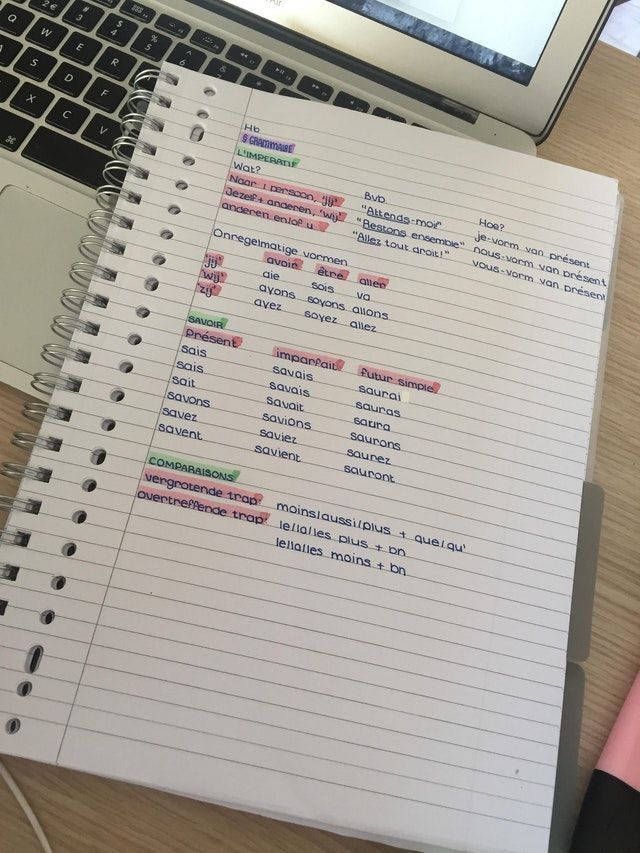 Hb
§ GRAMMAIRE
L'IMPERATIF
Wat? Bvb. Hoe?
Naar 1 persoon, 'jij' "Attends-moi" je-vorm van présent
Jezelf + anderen, 'wij' "Restons ensemble" nous-vorm van présent
anderen en/of u "Allez tout droit!" vous-vorm van présent
Onregelmatige vormen
avoir être aller
'jij' aie sois va
'wij' ayons soyons allons
'zij' ayez soyez allez
SAVOIR
Présent imparfait futur simple
sais savais saurai
sais savais sauras
sait savait saura
savons savions saurons
savez saviez saurez
savent savient sauront
COMPARAISONS
vergrotende trap: moins/aussi/plus + que/qu'
overtreffende trap: le/la/les plus + bn
le/la/les moins + bn